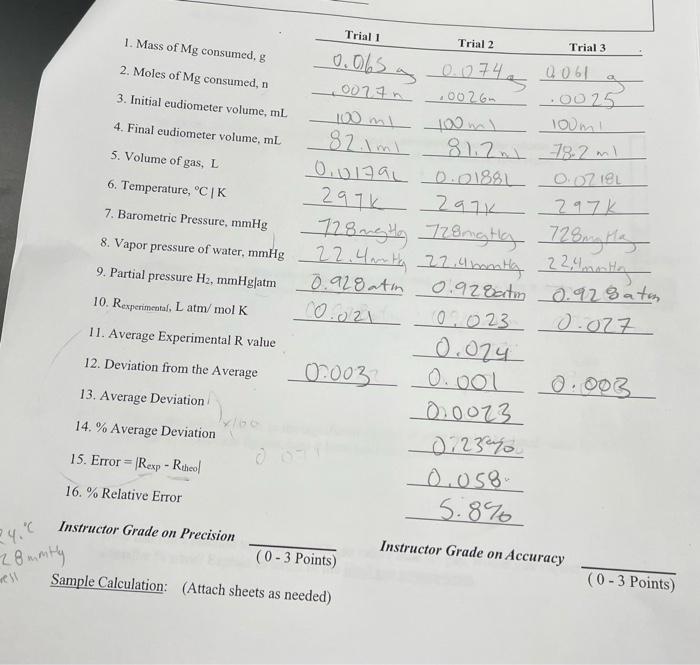 Trial 1 Trial 2 Trial 3
1. Mass of Mg consumed, g 0.065 g 0.074 g 0.061 g
2. Moles of Mg consumed, n .0027n .0026n .0025
3. Initial eudiometer volume, mL 100 ml 100 ml 100ml
4. Final eudiometer volume, mL 82.1ml 81.2ml 78.2 ml
5. Volume of gas, L 0.0179L 0.0188L 0.0218L
6. Temperature, °C | K 297K 297K 297K
7. Barometric Pressure, mmHg 728mgHg 728mgHg 728mgHg
8. Vapor pressure of water, mmHg 22.4mmHg 22.4mmHg 22.4mmHg
9. Partial pressure H₂, mmHg|atm 0.928atm 0.928atm 0.928atm
10. Rexperimental, L atm/ mol K 0.021 0.023 0.027
11. Average Experimental R value 0.024
12. Deviation from the Average 0.003 0.001 0.003
13. Average Deviation 0.0023
x100
14. % Average Deviation 0.23%
15. Error = |Rexp - Rtheo| 0.058
16. % Relative Error 5.8%
24.°C
28mmHg
Instructor Grade on Precision Instructor Grade on Accuracy
( 0 - 3 Points) ( 0 - 3 Points)
Sample Calculation: (Attach sheets as needed)